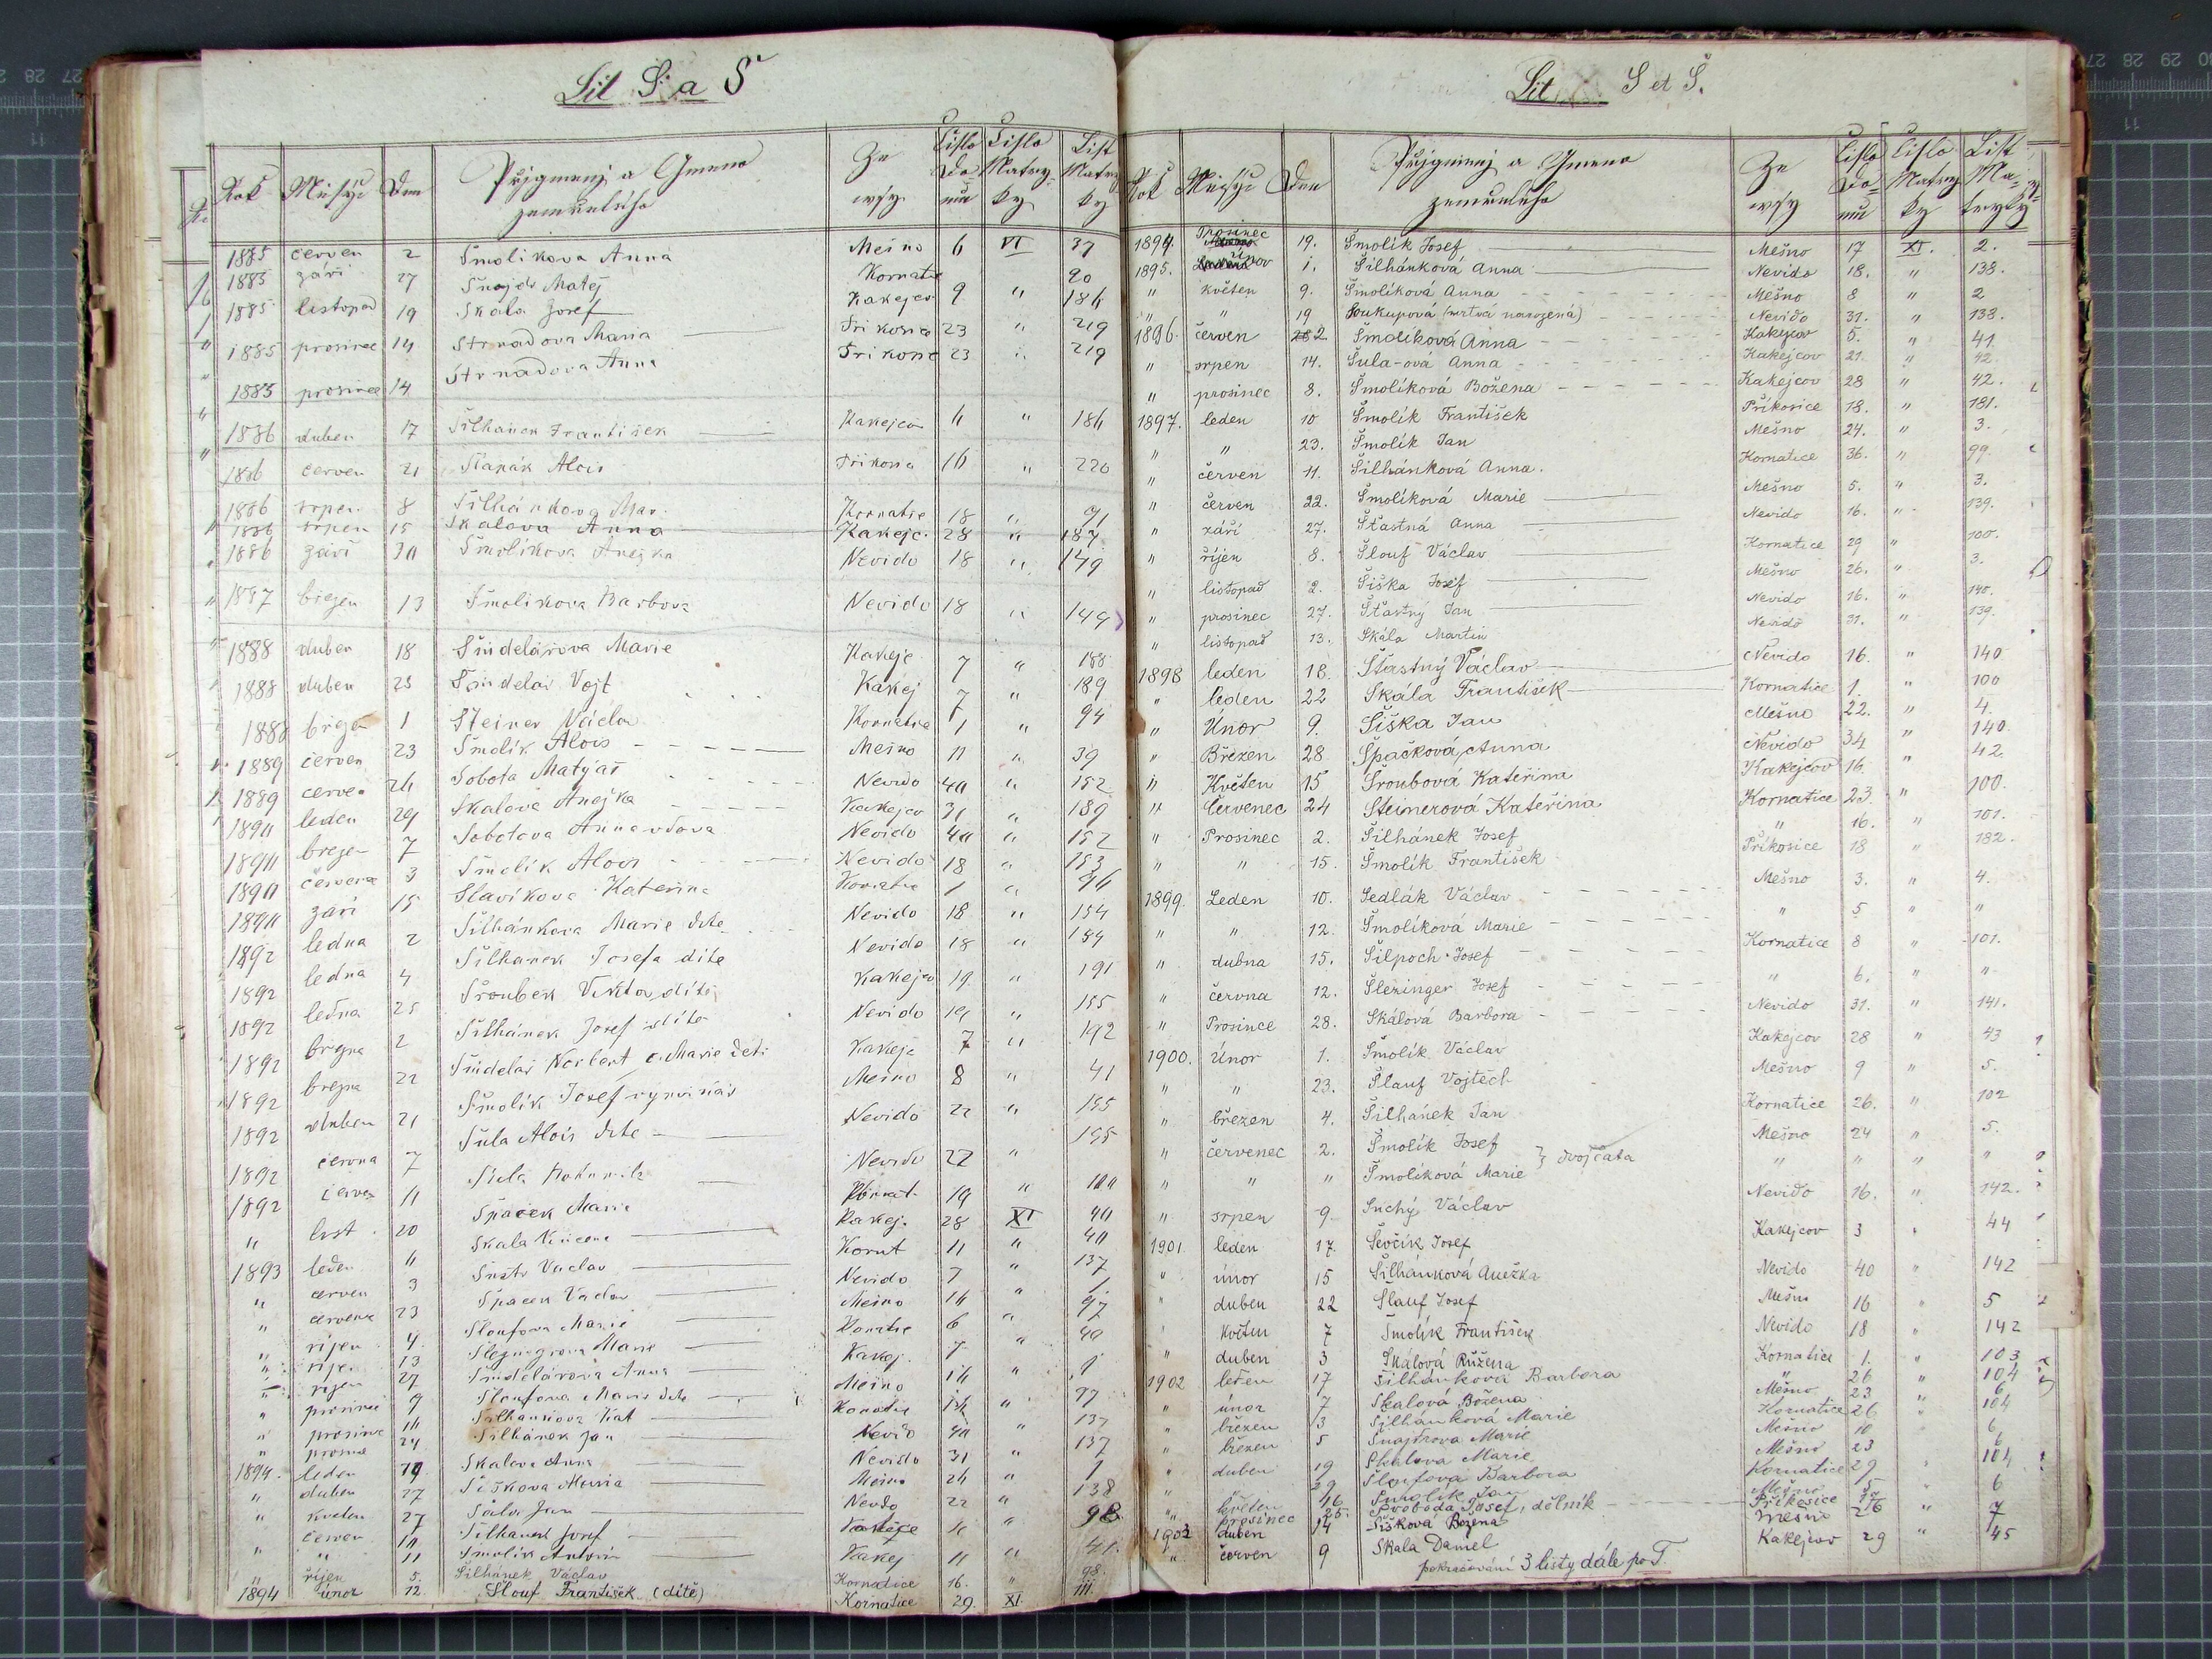 Lit S a Š
Rok Měsýc Den Přigmenj a Gmeno zemřeliho Ze wsy Cislo Domu Cislo Matryky List Matryky
1885 červen 2 Šmolikova Anna Mešno 6 VI 37
1885 září 27 Šnajdr Matěj Kornatic 20
1885 listopad 19 Skala Josef Kakejcov 9 " 186
1885 prosinec 14 Strnadova Maria 23 " 219
1885 prosinec 14 Strnadova Anna 23 " 219
1886 duben 17 Šilhanek František Kakejcov " 186
1886 červen 21 Alois 16 " 220
1886 srpen 8 Šilhankova Mar. Kornatic 18 "
1886 srpen 15 Skalova Anna Kakejc. 28 " 187
1886 září 30 Šmolikova Anežka Nevido 18 " 149
1887 březen 13 Šmolikova Barbora Nevido 18 " 149
1888 duben 18 Šindelarova Marie Kakejc 7 " 188
1888 duben 25 Šindelař Vojt Kakej 7 " 189
1888 březen 1 Steiner Václav Kornatice 1 " 94
1889 červen 23 Šmolik Alois Mešno 11 " 39
1889 červen 26 Sobota Matyáš Nevido 40 " 152
1890 leden 29 Skalova Anežka Kakejcov 31 " 189
1890 březen 7 Sobotova Anna vdova Nevido 40 " 152
1890 červena 3 Šmolik Alois Nevido 18 " 153
1890 září 15 Slavikova Kateřina Kornatic 1 " 96
1892 ledna 2 Šilhánkova Marie dite Nevido 18 " 154
1892 ledna 4 Šilhanek Josefa dite Nevido 18 " 154
1892 ledna 25 Šroubek Vikta dítě Kakejco 19 " 191
1892 brezna 2 Šilhánek Josef dite Nevido 18 " 155
1892 brezna 22 Šindelař Norbert a Marie deti Kakejc 7 " 192
1892 duben 21 Šmolik Josef vyminář Mešno 8 " 41
1892 června 7 Šula Alois dite Nevido 22 " 155
1892 červen 11 Šula Bohumila Nevido 22 " 155
" list. 20 Špaček Marie Kornat. 19 " 100
1893 leden 11 Skala Kakej. 28 XI 40
" červen 3 Václav Kornt 11 " 40
" července 23 Špaček Václav Nevido 7 " 137
" říjen 4 Šloufova Marie Mešno 16 " 1
" říjen 13 Marie Kornatic 6 " 97
" říjen 27 Šindelářova Anna Kakej. 7 " 40
" prosinec 9 Šloufova Marie dite Mešno 16 " 1
" prosince 10 Šilhankova Kat Kornatic 16 " 97
" prosince 24 Šilhánek Jan Nevido 40 137
1894. leden 19 Skalova Anna Nevido 31 " 137
" duben 27 Šiškova Maria Mešno 26 " 1
" květen 27 Jan Nevido 22 " 138
" červen 10 Šilhanek Josef 98
" " 11 Šmolik Antonín Kakej 11 " 41.
" říjen 5. Šilhánek Václav Kornatice 16. " 98.
1894 únor 12. Šlouf František (dítě) Kornatice 29. XI.
Lit S et Š.
Rok Měsýc Den Přigmenj a Gmeno zemřeliho Ze wsy Cislo Domu Cislo Matryky List Matryky
1894. Prosinec 19. Šmolík Josef Mešno 17 XI. 2.
1895. Únor 1. Šilhánková Anna Nevido 18. " 138.
" květen 9. Šmolíková Anna Mešno 8 " 2
" " 19 Soukupová (mrtvá narozená) Nevido 31. " 138.
1896. červen 2 Šmolíková Anna Kakejcov 5. " 41
" srpen 14. Šula-ová Anna Kakejcov 21. " 42.
" prosinec 8. Šmolíková Božena Kakejcov 28 " 42.
1897. leden 10 Šmolík František Příkosice 18. " 181.
" " 23. Šmolík Jan Mešno 24. " 3.
" červen 11. Šilhánková Anna. Kornatice 36. " 99.
" červen 22. Šmolíková Marie Mešno 5. " 3.
" září 27. Šťastná Anna Nevido 16. " 139.
" říjen 8. Šlouf Václav Kornatice 29 " 100.
" listopad 2. Šiška Josef Mešno 26. " 3.
" prosinec 27. Šťastný Jan Nevido 16. " 140.
" listopad 13. Skála Martin Nevido 31. " 139.
1898 leden 18. Šťastný Václav Nevido 16. " 140
" leden 22 Skála František Kornatice 1. " 100
" Únor 9. Šiška Jan Mešno 22. " 4.
" Březen 28 Špačková Anna Nevido 34 " 140.
" Květen 15 Šroubová Kateřina Kakejcov 16. " 42
" Červenec 24 Steinerová Kateřina Kornatice 23. " 100.
" Prosinec 2. Šilhánek Josef " 16. " 101.
" " 15. Šmolík František Příkosice 18 " 182.
1899. Leden 10. Sedlák Václav Mešno 3. " 4.
" " 12. Šmolíková Marie " 5 " "
" dubna 15. Šilpoch Josef Kornatice 8 " 101.
" června 12. Šlezinger Josef " 6. " "
" Prosince 28. Skálová Barbora Nevido 31. " 141.
1900. Únor 1. Šmolík Václav Kakejcov 28 " 43
" " 23. Šlauf Vojtěch Mešno 9 " 5.
" březen 4. Šilhánek Jan Kornatice 26. " 102
" červenec 2. Šmolík Josef } dvojčata Mešno 24 " 5.
" " " Šmolíková Marie " " " "
" srpen 9. Suchý Václav Nevido 16. " 142.
1901. leden 17. Ševčík Josef Kakejcov 3 " 44
" únor 15 Šilhánková Anežka Nevido 40 " 142
" duben 22 Šlauf Josef Mešno 16 " 5
" květen 7 Šmolík František Nevido 18 " 142
" duben 3 Skálová Růžena Kornatice 1. " 103
1902 leden 17 Šilhánková Barbora " 26 " 104
" únor 7 Skalová Božena Mešno 23 " 6
" březen 13 Šilhánková Marie Kornatice 26 " 104
" březen 5 Šnajdrova Marie Mešno 10 6
" duben 19 Skalova Marie Mešno 23 6
" 29 Šloufová Barbora Kornatice 29 " 104
" květen 16 Šmolík Jan Mešno 15 " 6
" prosinec 25. Svoboda Josef, dělník Příkosice
1903 duben 14 Šišková Božena Mešno 26 " 7
" červen 9 Skala Daniel Kakejcov 29 " 45
pokračování 3 listy dále po T.